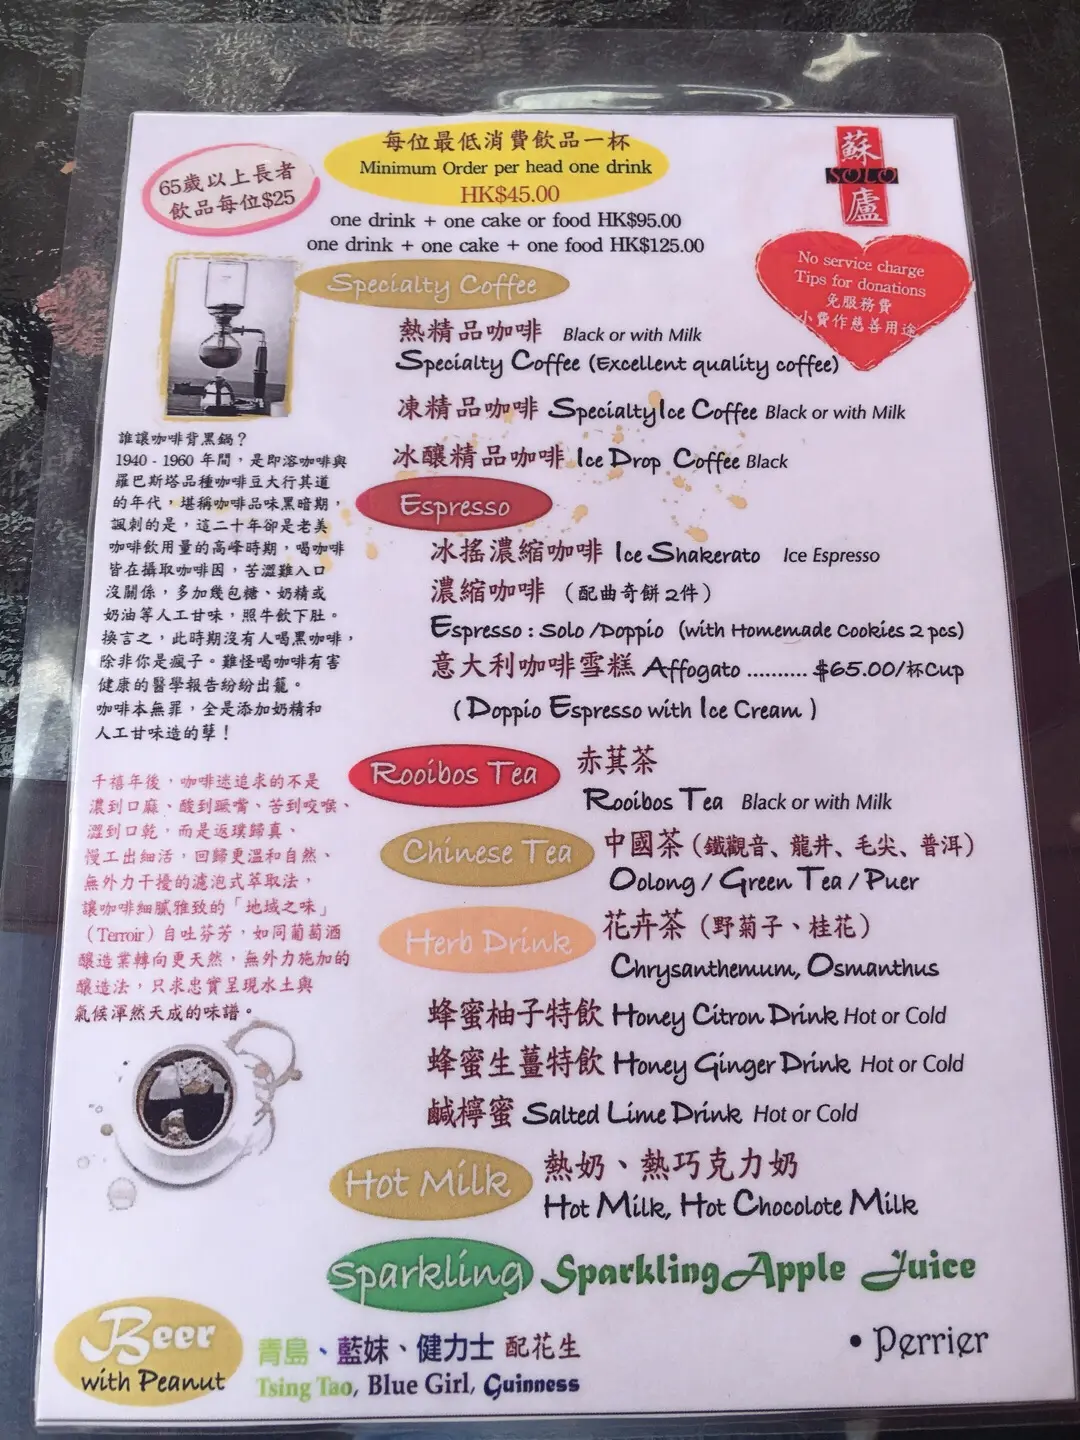 每位最低消費飲品一杯
Minimum Order per head one drink
HK$45.00
one drink + one cake or food HK$95.00
one drink + one cake + one food HK$125.00
65歲以上長者
飲品每位$25
蘇
SOLO
廬
No service charge
Tips for donations
免服務費
小費作慈善用途
Specialty Coffee
熱精品咖啡 Black or with Milk
Specialty Coffee (Excellent quality coffee)
凍精品咖啡 Specialty Ice Coffee Black or with Milk
冰釀精品咖啡 Ice Drop Coffee Black
Espresso
冰搖濃縮咖啡 Ice Shakerato Ice Espresso
濃縮咖啡 （配曲奇餅2件）
Espresso : Solo /Doppio (with Homemade Cookies 2 pcs)
意大利咖啡雪糕 Affogato .......... $65.00/杯Cup
( Doppio Espresso with Ice Cream )
Rooibos Tea
赤萁茶
Rooibos Tea Black or with Milk
Chinese Tea
中國茶（鐵觀音、龍井、毛尖、普洱）
Oolong / Green Tea / Puer
Herb Drink
花卉茶（野菊子、桂花）
Chrysanthemum, Osmanthus
蜂蜜柚子特飲 Honey Citron Drink Hot or Cold
蜂蜜生薑特飲 Honey Ginger Drink Hot or Cold
鹹檸蜜 Salted Lime Drink Hot or Cold
Hot Milk
熱奶、熱巧克力奶
Hot Milk, Hot Chocolate Milk
Sparkling
Sparkling Apple Juice
• Perrier
誰讓咖啡背黑鍋？
1940 - 1960 年間，是即溶咖啡與
羅巴斯塔品種咖啡豆大行其道
的年代，堪稱咖啡品味黑暗期，
諷刺的是，這二十年卻是老美
咖啡飲用量的高峰時期，喝咖啡
皆在攝取咖啡因，苦澀難入口
沒關係，多加幾包糖、奶精或
奶油等人工甘味，照牛飲下肚。
換言之，此時期沒有人喝黑咖啡，
除非你是瘋子。難怪喝咖啡有害
健康的醫學報告紛紛出籠。
咖啡本無罪，全是添加奶精和
人工甘味造的孽！
千禧年後，咖啡迷追求的不是
濃到口麻、酸到噘嘴、苦到咬喉、
澀到口乾，而是返璞歸真、
慢工出細活，回歸更溫和自然、
無外力干擾的濾泡式萃取法，
讓咖啡細膩雅致的「地域之味」
（Terroir）自吐芬芳，如同葡萄酒
釀造業轉向更天然，無外力施加的
釀造法，只求忠實呈現水土與
氣候渾然天成的味譜。
Beer
with Peanut
青島、藍妹、健力士 配花生
Tsing Tao, Blue Girl, Guinness